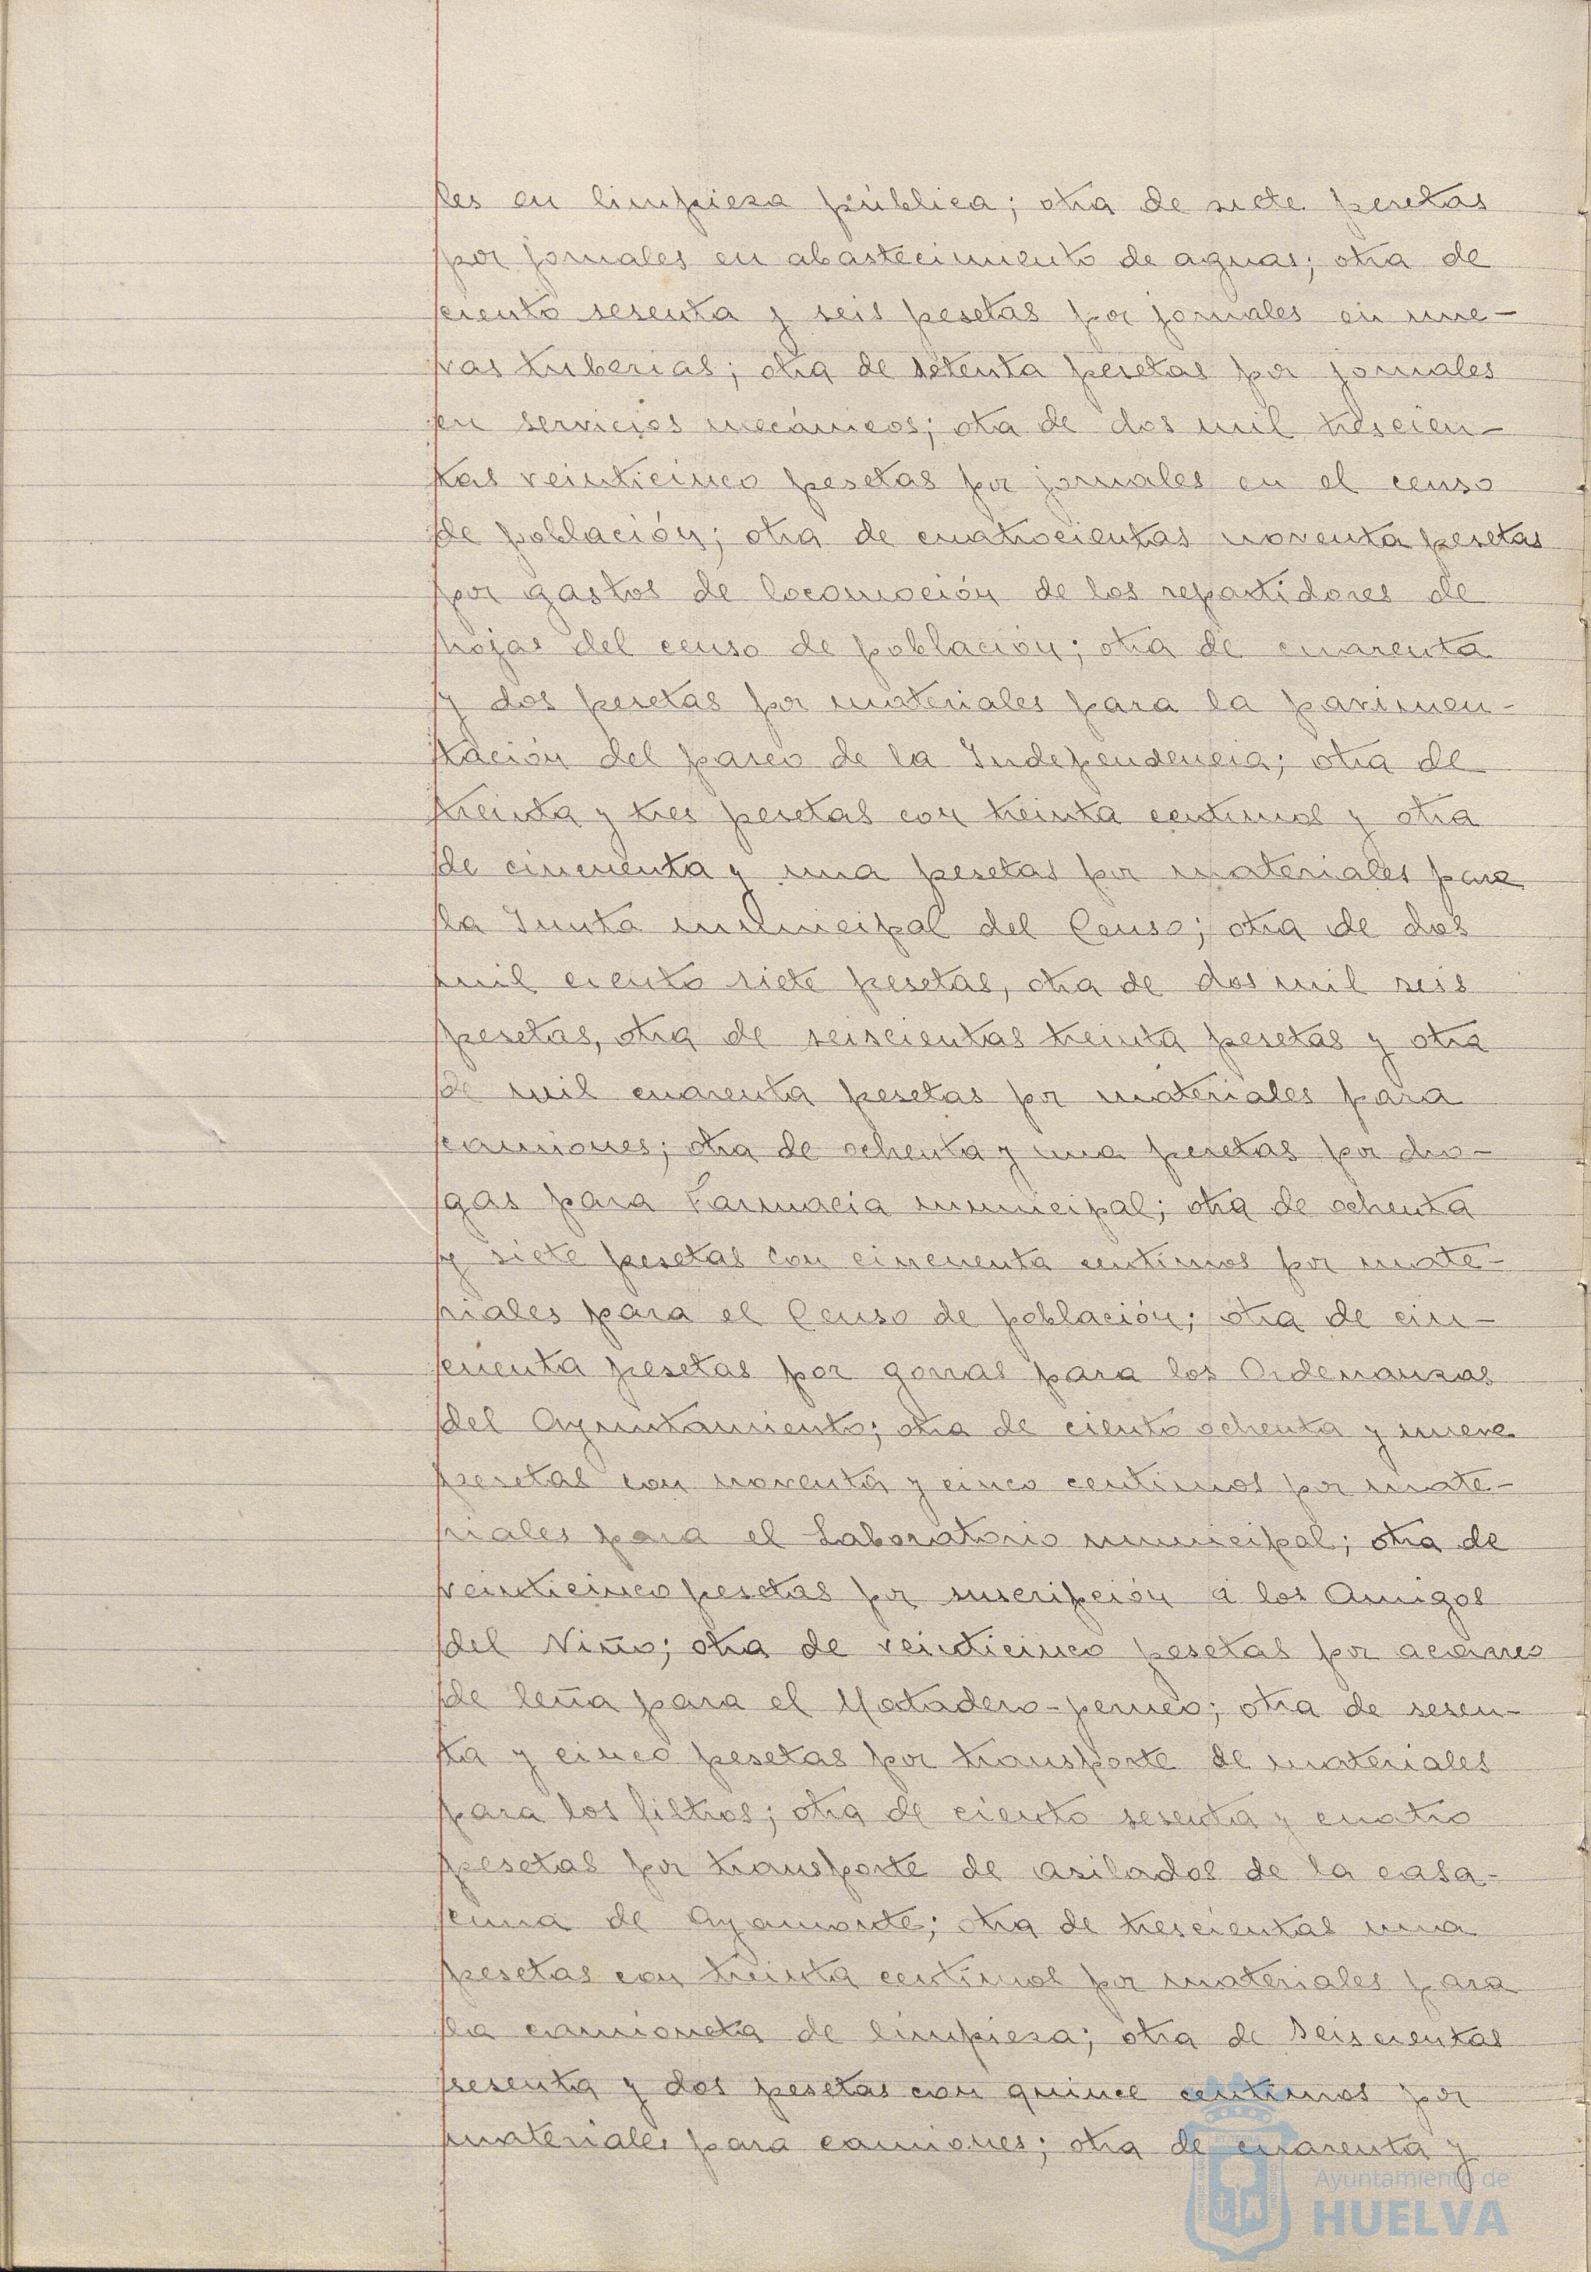 les en limpieza pública; otra de siete pesetas
por jornales en abastecimiento de aguas; otra de
ciento sesenta y seis pesetas por jornales en nue-
vas tuberias; otra de setenta pesetas por jornales
en servicios mecánicos; otra de dos mil trescien-
tas veinticinco pesetas por jornales en el censo
de población; otra de cuatrocientas noventa pesetas
por gastos de locomoción de los repartidores de
hojas del censo de población; otra de cuarenta
y dos pesetas por materiales para la pavimen-
tación del paseo de la Independencia; otra de
treinta y tres pesetas con treinta centimos y otra
de cincuenta y una pesetas por materiales para
la Junta municipal del Censo; otra de dos
mil ciento siete pesetas, otra de dos mil seis
pesetas, otra de seiscientas treinta pesetas y otra
de mil cuarenta pesetas por materiales para
camiones; otra de ochenta y una pesetas por dro-
gas para Farmacia municipal; otra de ochenta
y siete pesetas con cincuenta centimos por mate-
riales para el Censo de población; otra de cin-
cuenta pesetas por gorras para los Ordenanzas
del Ayuntamiento; otra de ciento ochenta y nueve
pesetas con noventa y cinco centimos por mate-
riales para el Laboratorio municipal; otra de
veinticinco pesetas por suscripción a los Amigos
del Niño; otra de veinticinco pesetas por acarreo
de leña para el Matadero-perneo; otra de sesen-
ta y cinco pesetas por transporte de materiales
para los filtros; otra de ciento sesenta y cuatro
pesetas por transporte de asilados de la casa-
cuna de Ayamonte; otra de trescientas una
pesetas con treinta centimos por materiales para
la camioneta de limpieza; otra de seiscientas
sesenta y dos pesetas con quince centimos por
materiales para camiones; otra de cuarenta y
Ayuntamiento de
HUELVA